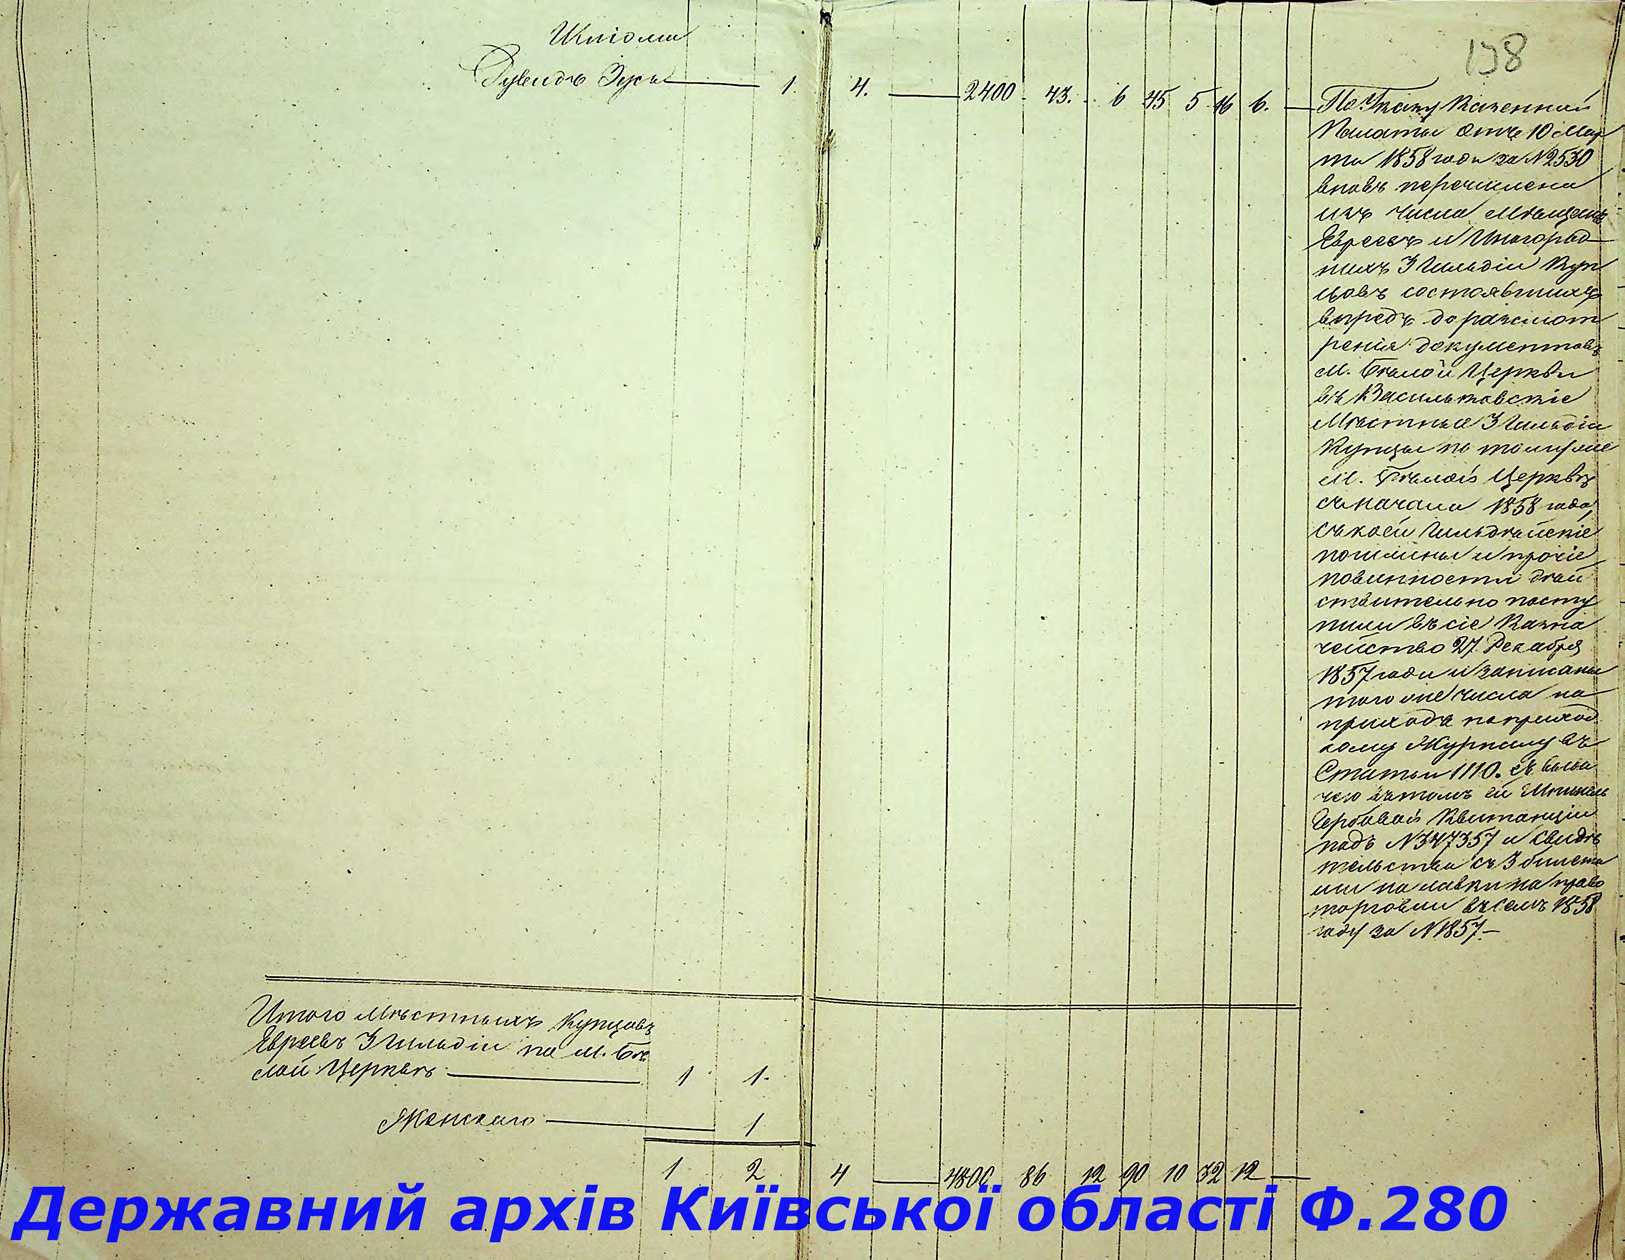 138
Шліомы
Рувинъ Зусь 1. 4. 2400 43. 6 45 5 16 6.
По Указу Казенной
Палаты отъ 10 Мар
та 1858 года за №2530
вновь перечислена
изъ числа Мѣщанъ
Евреевъ и Иногород
ныхъ 3 Гильдіи Куп
цовъ состоявшихъ
впредь до разсмот
ренія документовъ
М. Бѣлой Церкви
въ Васильковскіе
Мѣстные 3 Гильдіи
Купцы по тому же
М. Бѣлой Церквѣ
съ начала 1858 года,
съ коей Гильдейскіе
пошлины и прочіе
повинности дѣй
ствительно посту
пили въ сіе Казна
чейство 27 Декабря
1857 года и записаны
того же числа на
приходъ по приход
кому Журналу въ
Статьи 1110. въ
чего въ томъ ей
Гербовой Квитанціи
подъ №347357 и свидѣ
тельства съ 3 билета
ми на лавки на право
торговли въ семъ 1858
году за №1857
Итого Мѣстныхъ Купцовъ
Евреевъ 3 Гильдіи по М. Бѣ
лой Церквѣ 1 1.
Женскаго 1
1 2 4 4800 86 12 90 10 32 12
Державний архів Київської області Ф.280